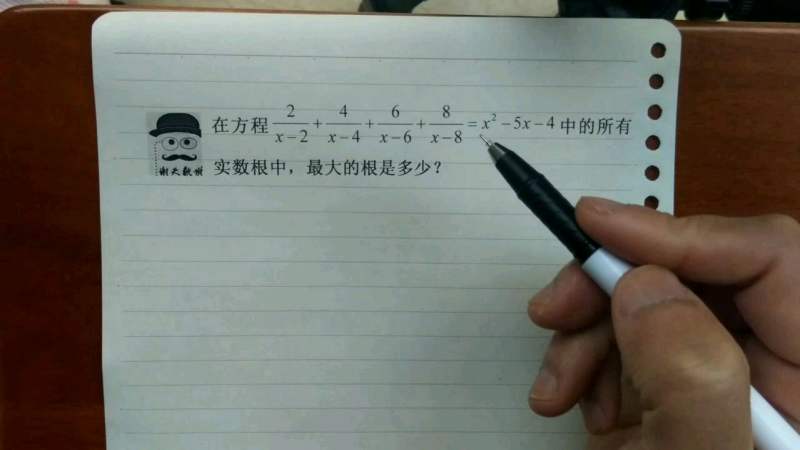 在方程 \frac{2}{x-2}+\frac{4}{x-4}+\frac{6}{x-6}+\frac{8}{x-8}=x^2-5x-4 中的所有
实数根中，最大的根是多少？